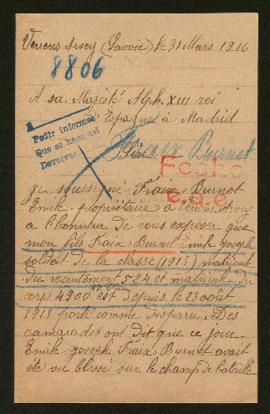 Verrens Arvey (Savoie) le 31 Mars 1916
8806
A sa Majesté Alph. XIII roi
d'Espagne à Madrid
Pedir informes
Que se hace así
Devolver
Fraix Burnet
Sire
Je soussigné Fraix Burnet
Emile propriétaire à
a l'honneur de vous exposer que
mon fils Fraix-Burnet Emile Joseph
soldat de la classe (1913) matricule
du recrutement 524 et matricule du
corps 4900 est depuis le 23 août
porté comme disparu. Des
camarades ont dit que ce jour
Emile Joseph Fraix-Burnet avait
été vu blessé sur le champ de bataille